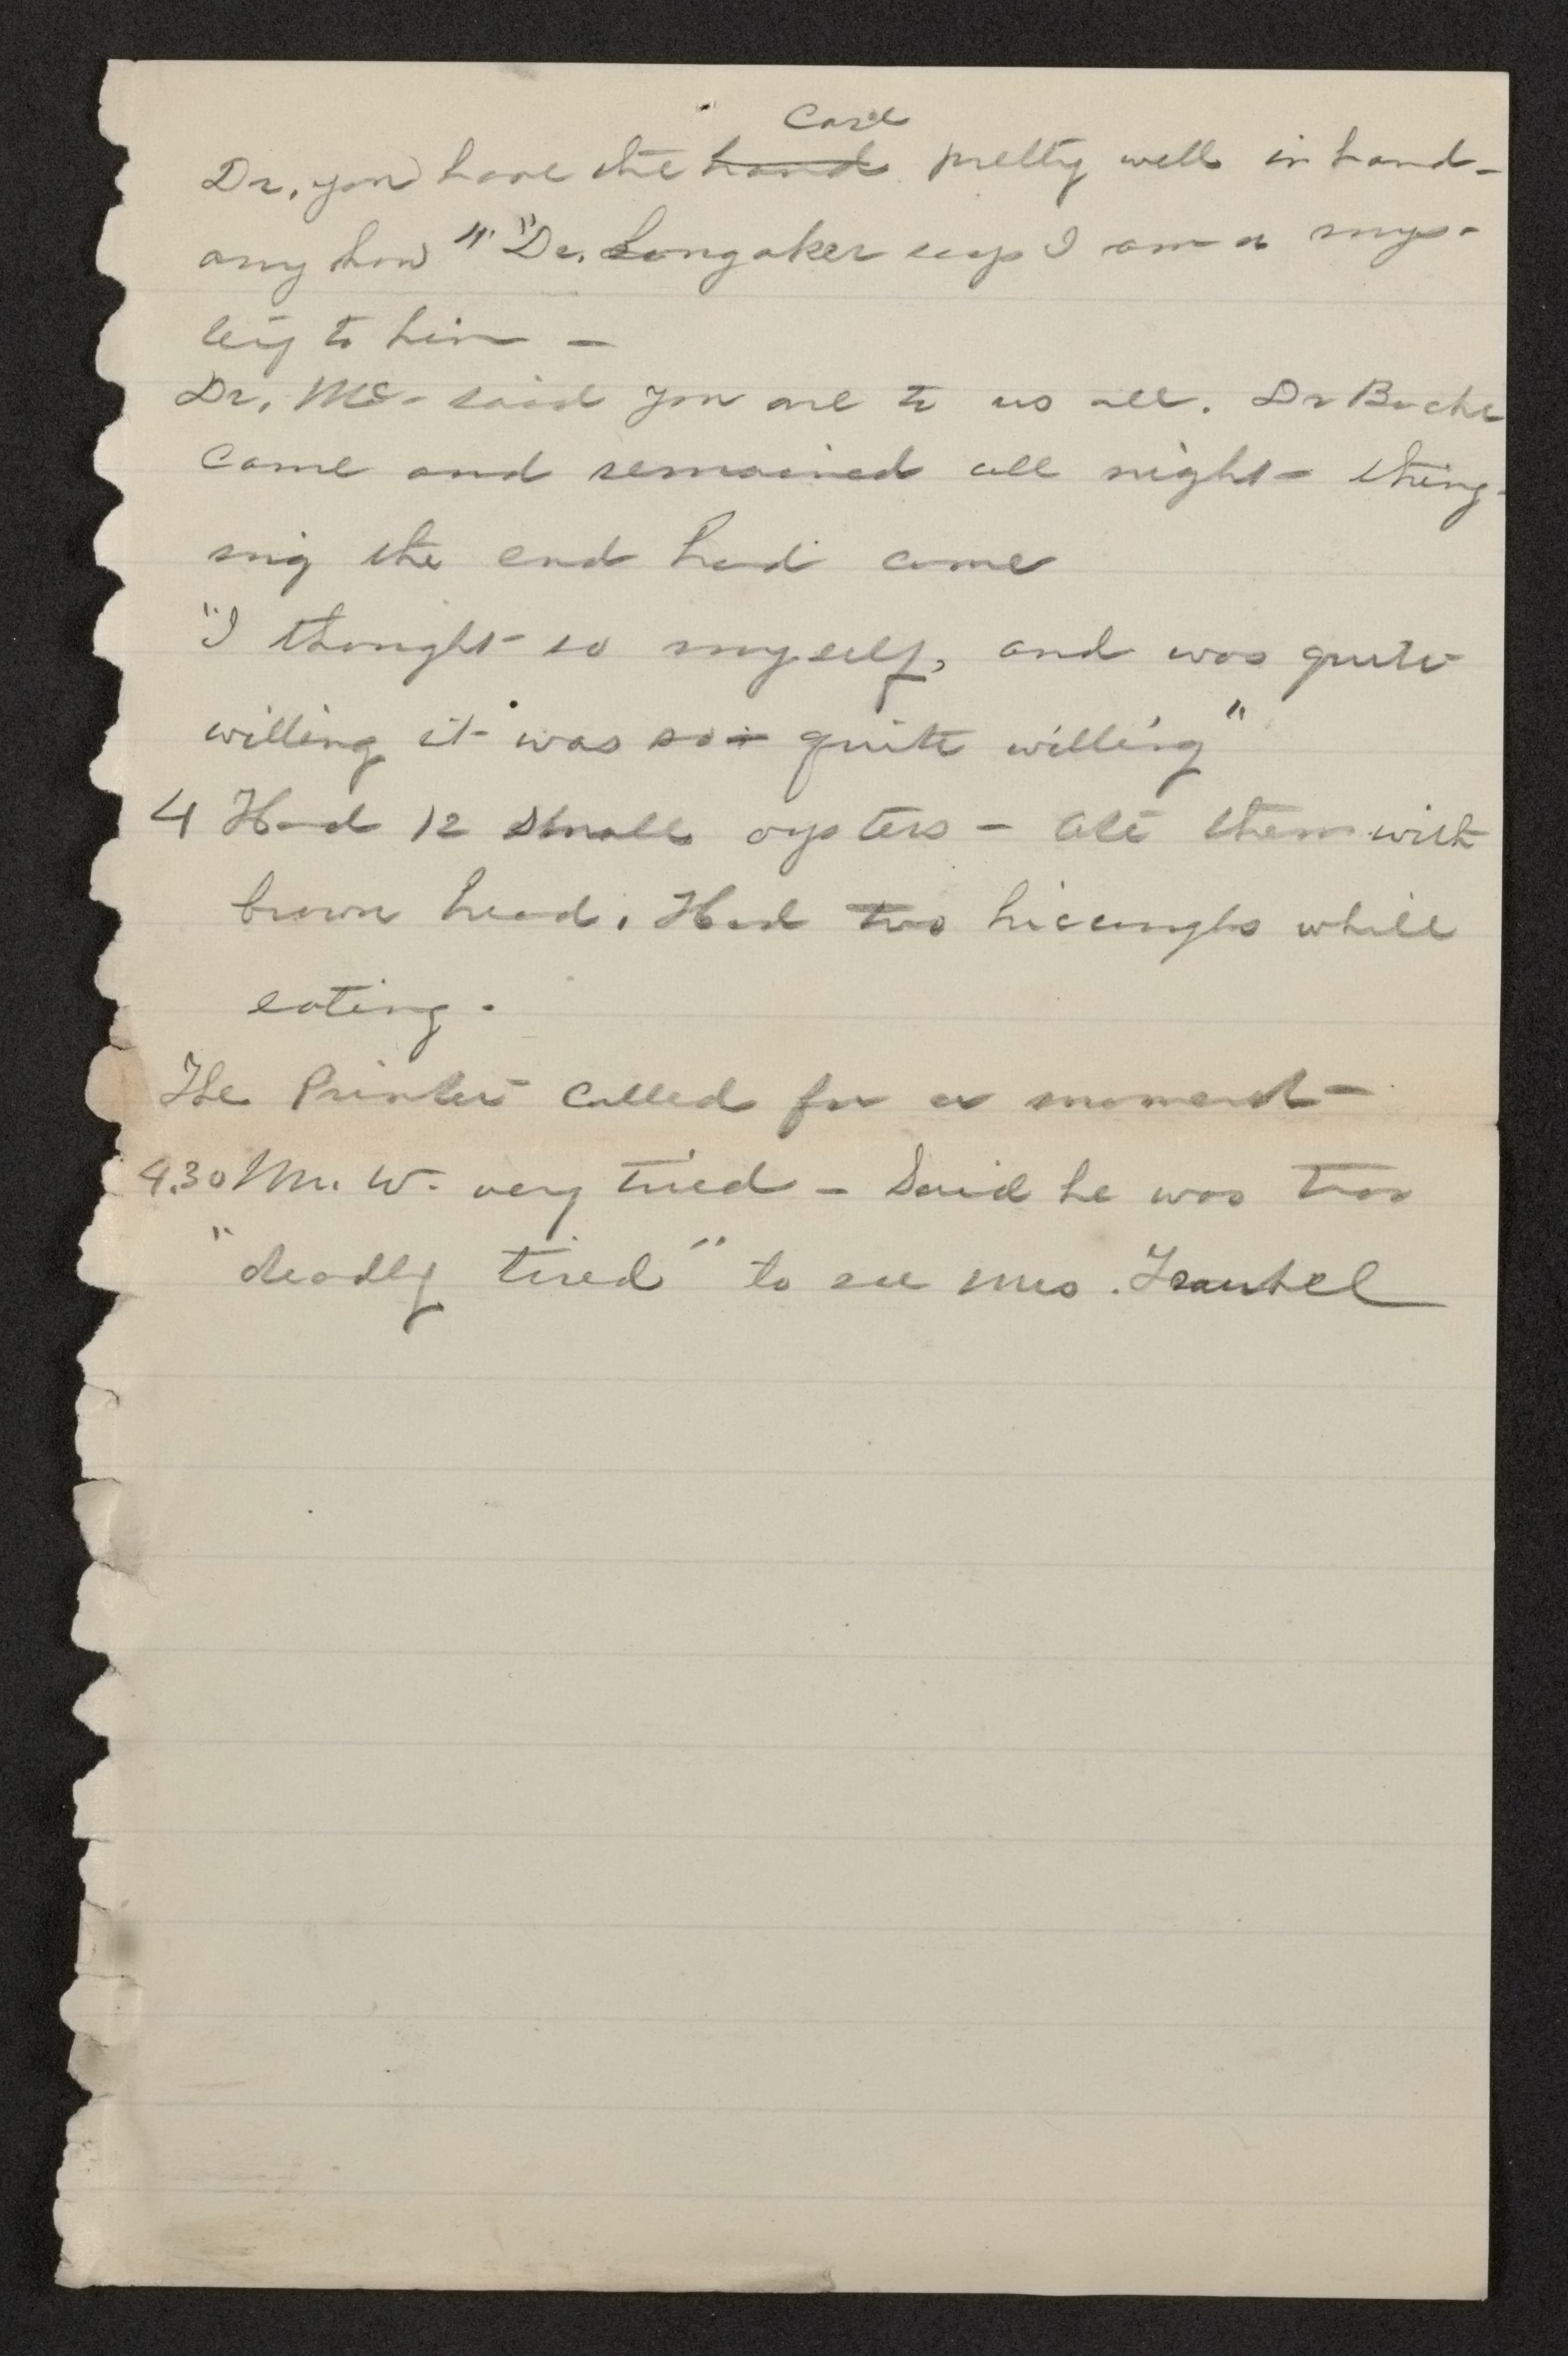 Case
Dr, you have the hand pretty well in hand -
any how" "Dr. Longaker says I am a mys-
tery to him -
Dr, Mc - said you are to us all. Dr Buche
came and remained all night - thing-
ing the end had come
"I thought so myself, and was quite
willing it was so - quite willing"
4 Had 12 small oysters - ate them with
brown bread. Had two hiccoughs while
eating.
The Printer called for a moment -
4.30 Mr. W. very tired - Said he was too
"deadly tired" to see Mrs. Traubel